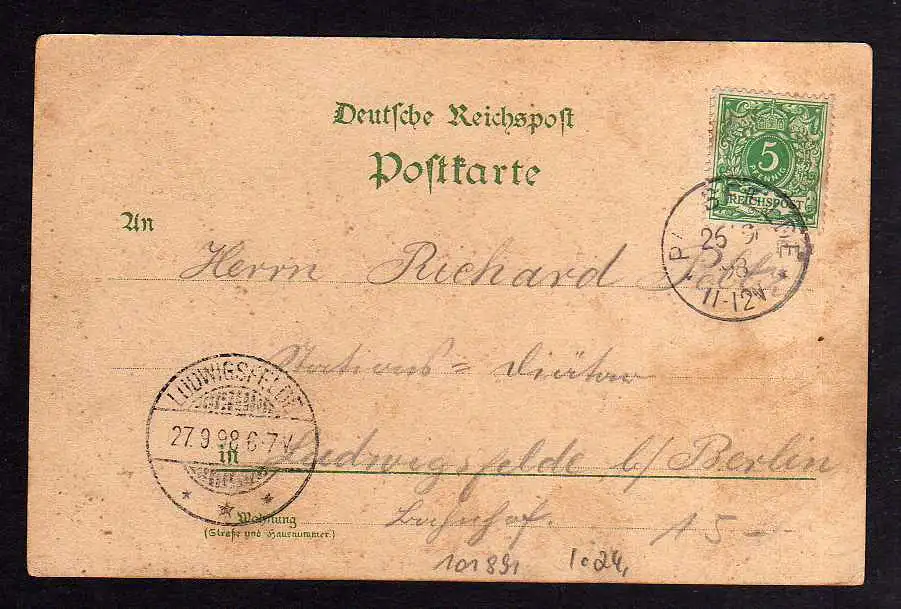 Deutsche Reichspost
Postkarte
5
PFENNIG
REICHSPOST
11-12V
An
Herrn Richard
Stations = Diätar
LUDWIGSFELDE
27.9.98 6-7V
in Ludwigsfelde b/ Berlin
Wohnung
(Straße und Hausnummer.)
Bahnhof. 15
101891 10 24,